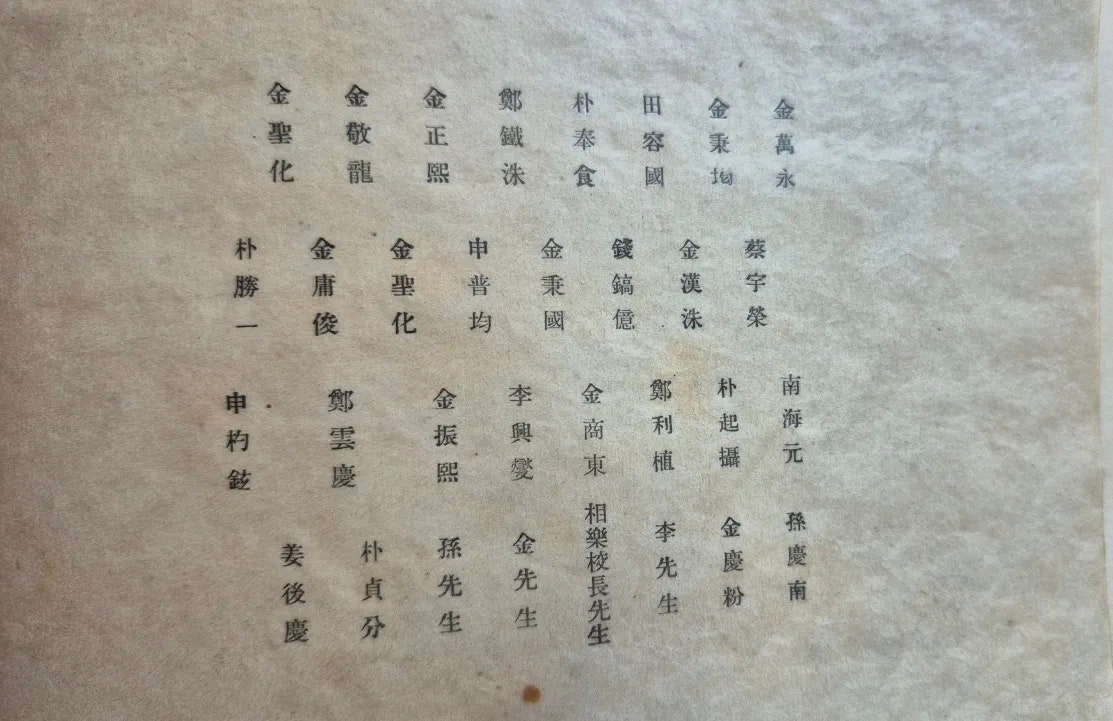 金萬永
金秉均
田容國
朴奉食
鄭鐵洙
金正熙
金敬龍
金聖化
蔡宇榮
金漢洙
錢鎬億
金秉國
申普均
金聖化
金庸俊
朴勝一
南海元
朴起攝
鄭利植
金商東
李興燮
金振熙
鄭雲慶
申杓鉉
孫慶南
金慶粉
李先生
相樂校長先生
金先生
孫先生
朴貞分
姜後慶